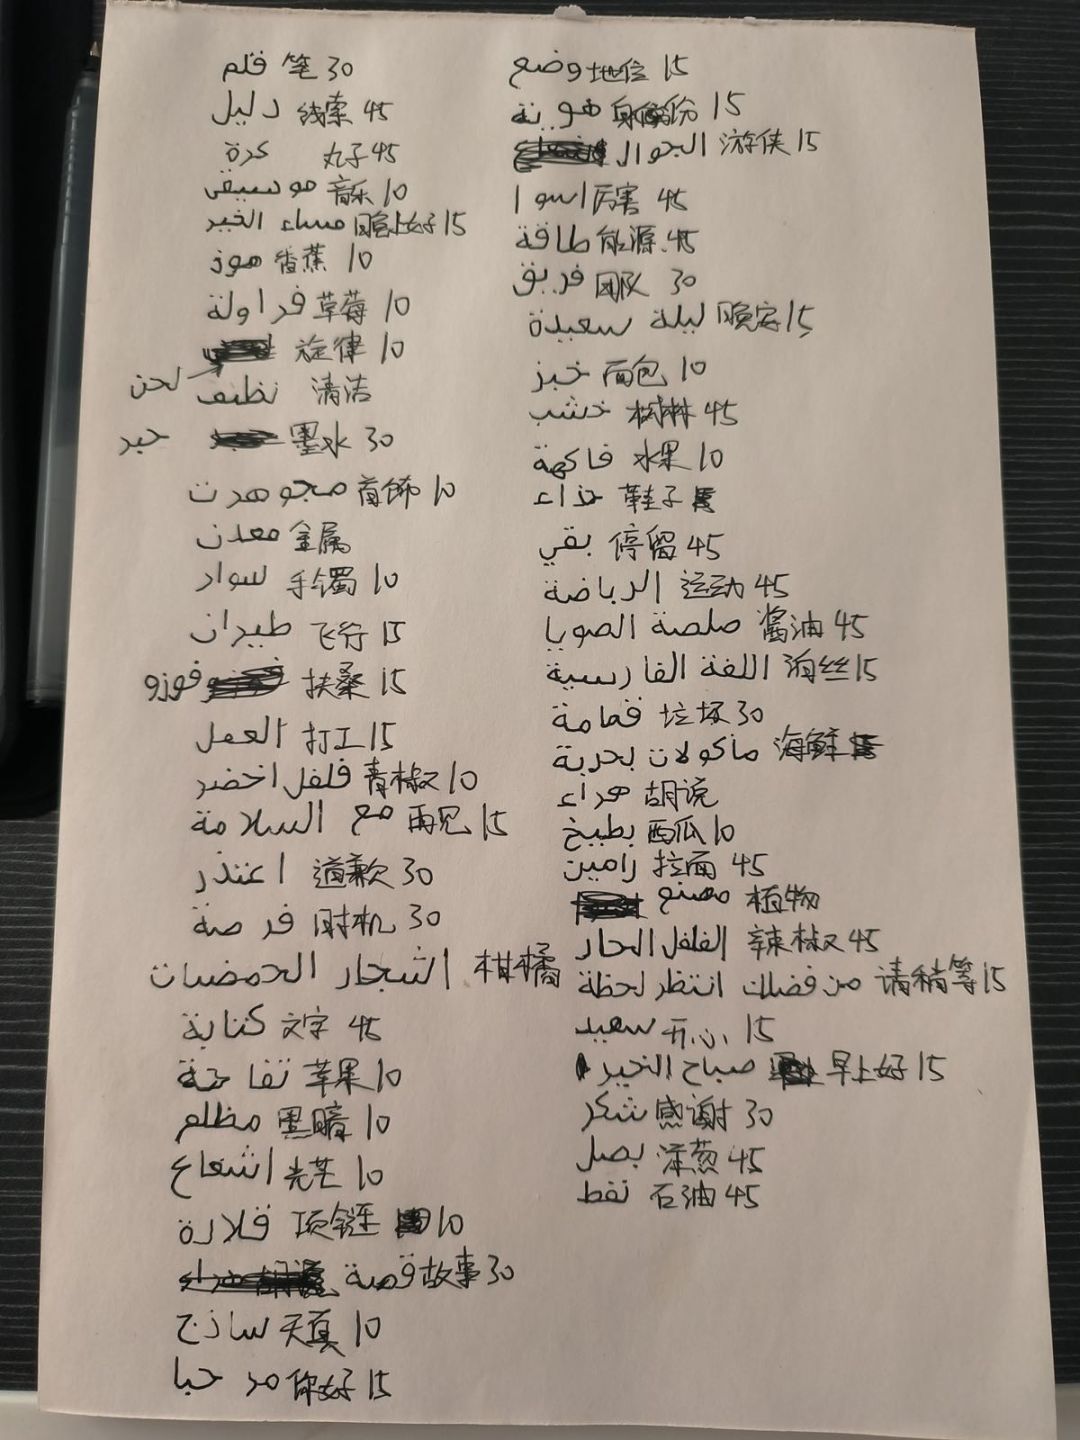 قلم 笔 30
دليل 线索 45
كرة 丸子 45
موسيقى 音乐 10
مساء الخير 晚上好 15
موز 香蕉 10
فراولة 草莓 10
旋律 10
لحن
نظيف 清洁
حبر 墨水 30
مجوهرت 首饰 10
معدن 金属
سوار 手镯 10
طيران 飞行 15
وفوزو 扶桑 15
العمل 打工 15
فلفل اخضر 青椒 10
مع السلامة 再见 15
اعتذر 道歉 30
فرصة 时机 30
الشجار الحمضيات 柑橘
كتابة 文字 45
تفاحة 苹果 10
مظلم 黑暗 10
اشعاع 光芒 10
قلادة 项链 10
قصة 故事 30
ساذج 天真 10
مرحبا 你好 15
وضع 地位 15
هوية 身份 15
الجوال 游侠 15
اسوا 厉害 45
طاقة 能源 45
فريق 团队 30
ليلة سعيدة 晚安 15
خبز 面包 10
خشب 树林 45
فاكهة 水果 10
حذاء 鞋子
بقي 停留 45
الرياضة 运动 45
صلصة الصويا 酱油 45
اللغة الفارسية 海丝 15
قمامة 垃圾 30
مأكولات بحرية 海鲜
هراء 胡说
بطيخ 西瓜 10
رامين 拉面 45
مصنع 植物
الفلفل الحار 辣椒 45
من فضلك انتظر لحظة 请稍等 15
سعيد 开心 15
صباح الخير 早上好 15
شكر 感谢 30
بصل 洋葱 45
نفط 石油 45